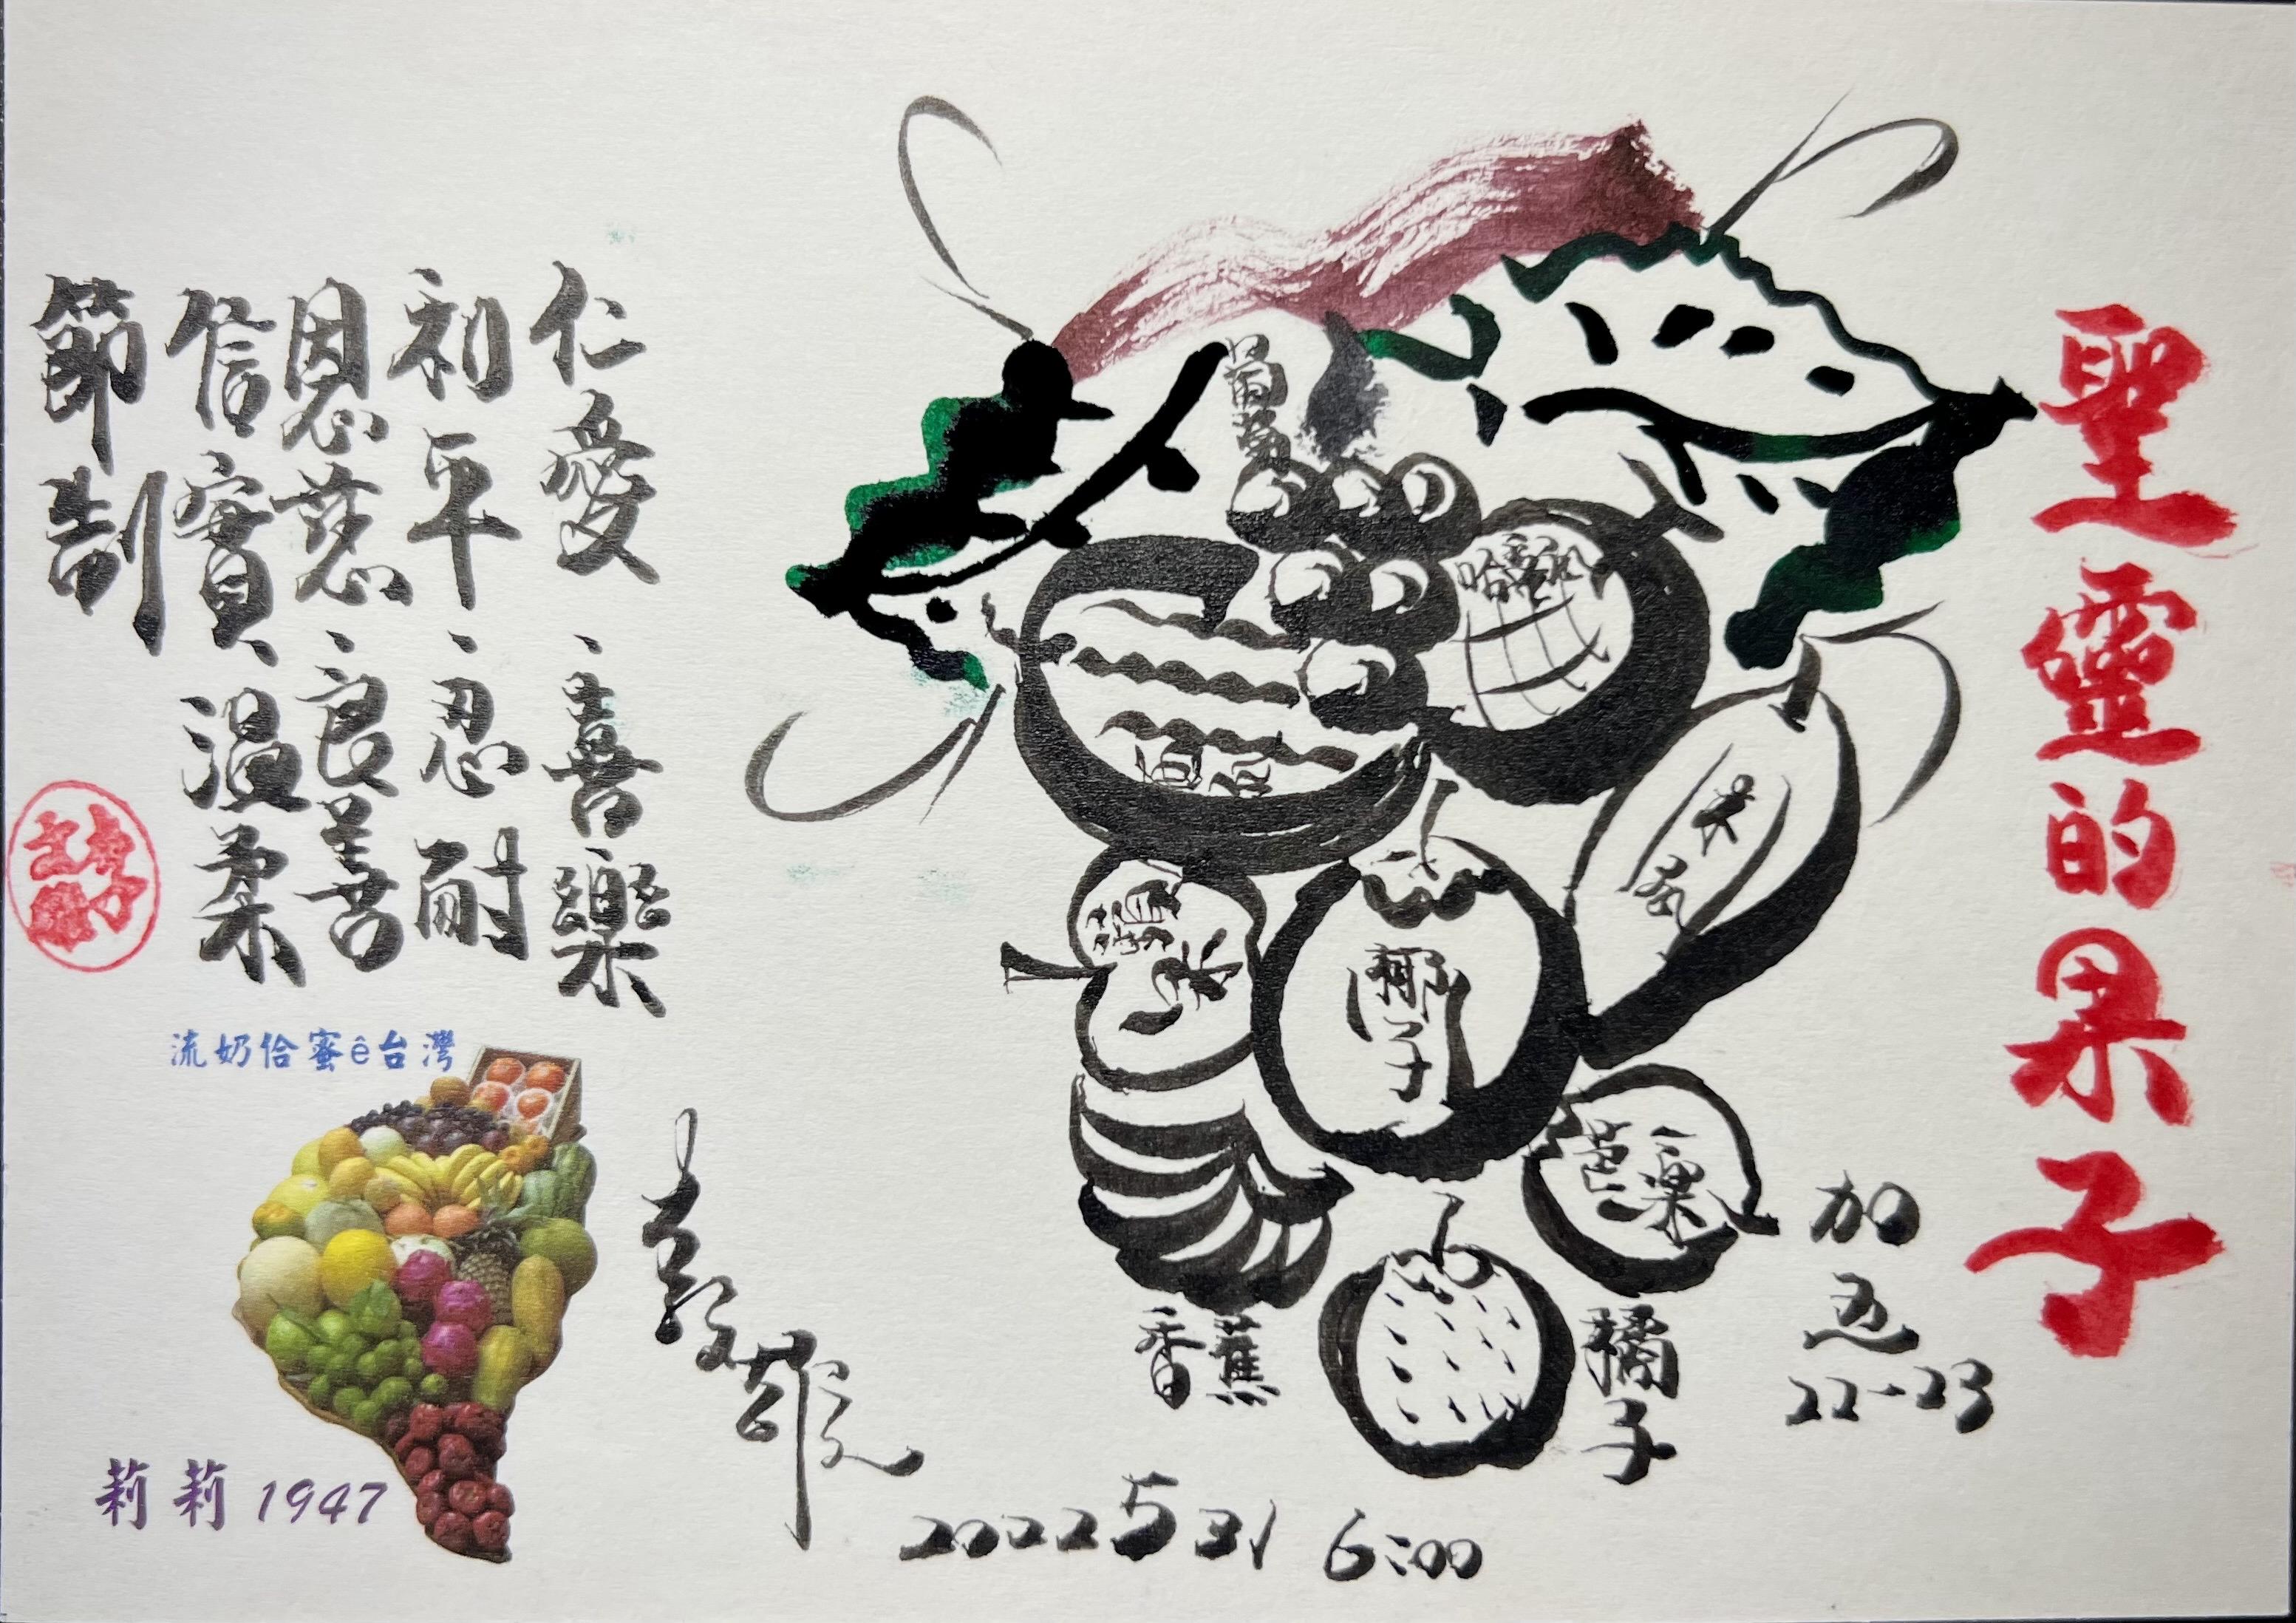 聖靈的果子
加五
22-23
葡萄
哈蜜瓜
西瓜
木瓜
蘋果
椰子
芭樂
香蕉
橘子
仁愛、喜樂
和平、忍耐
恩慈、良善
信實、溫柔
節制
2022 5 31 6:00
流奶佮蜜ê台灣
莉莉 1947